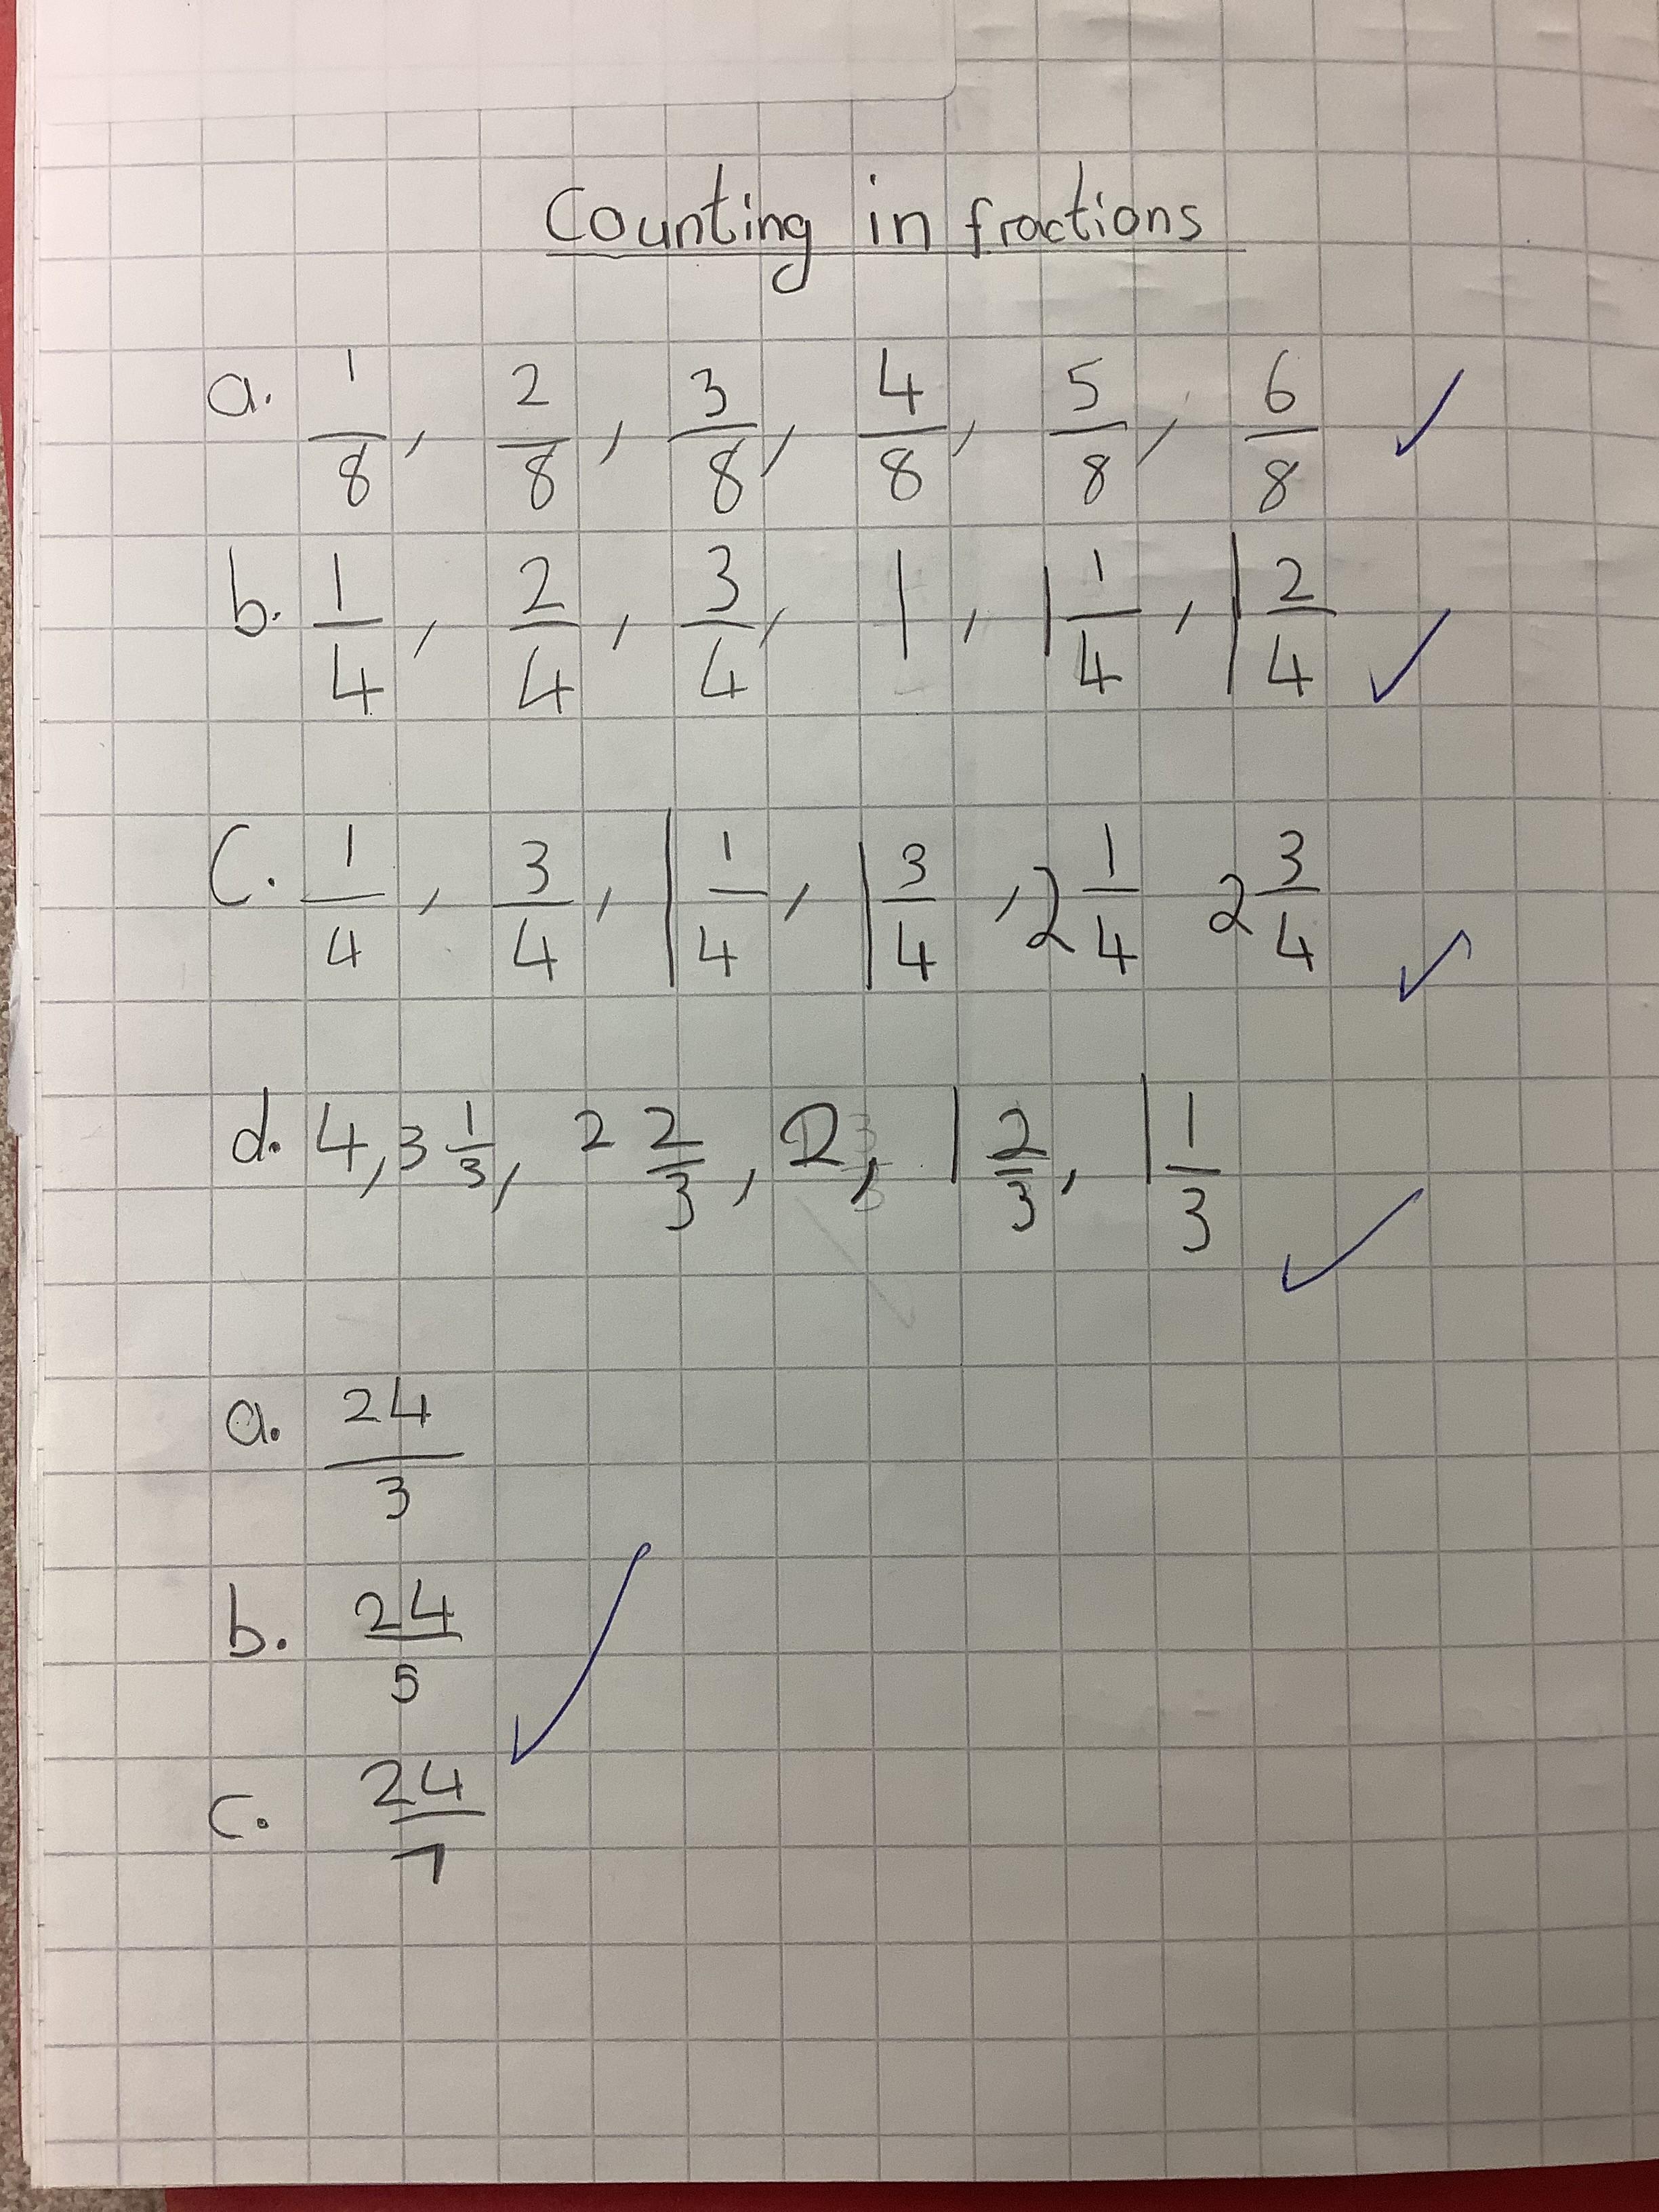 Counting in fractions
a. 1/8, 2/8, 3/8, 4/8, 5/8, 6/8 ✓
b. 1/4, 2/4, 3/4, 1, 1 1/4, 1 2/4 ✓
C. 1/4, 3/4, 1 1/4, 1 3/4, 2 1/4 2 3/4 ✓
d. 4, 3 1/3, 2 2/3, 2, 1 2/3, 1 1/3 ✓
a. 24/3
b. 24/5 ✓
c. 24/7